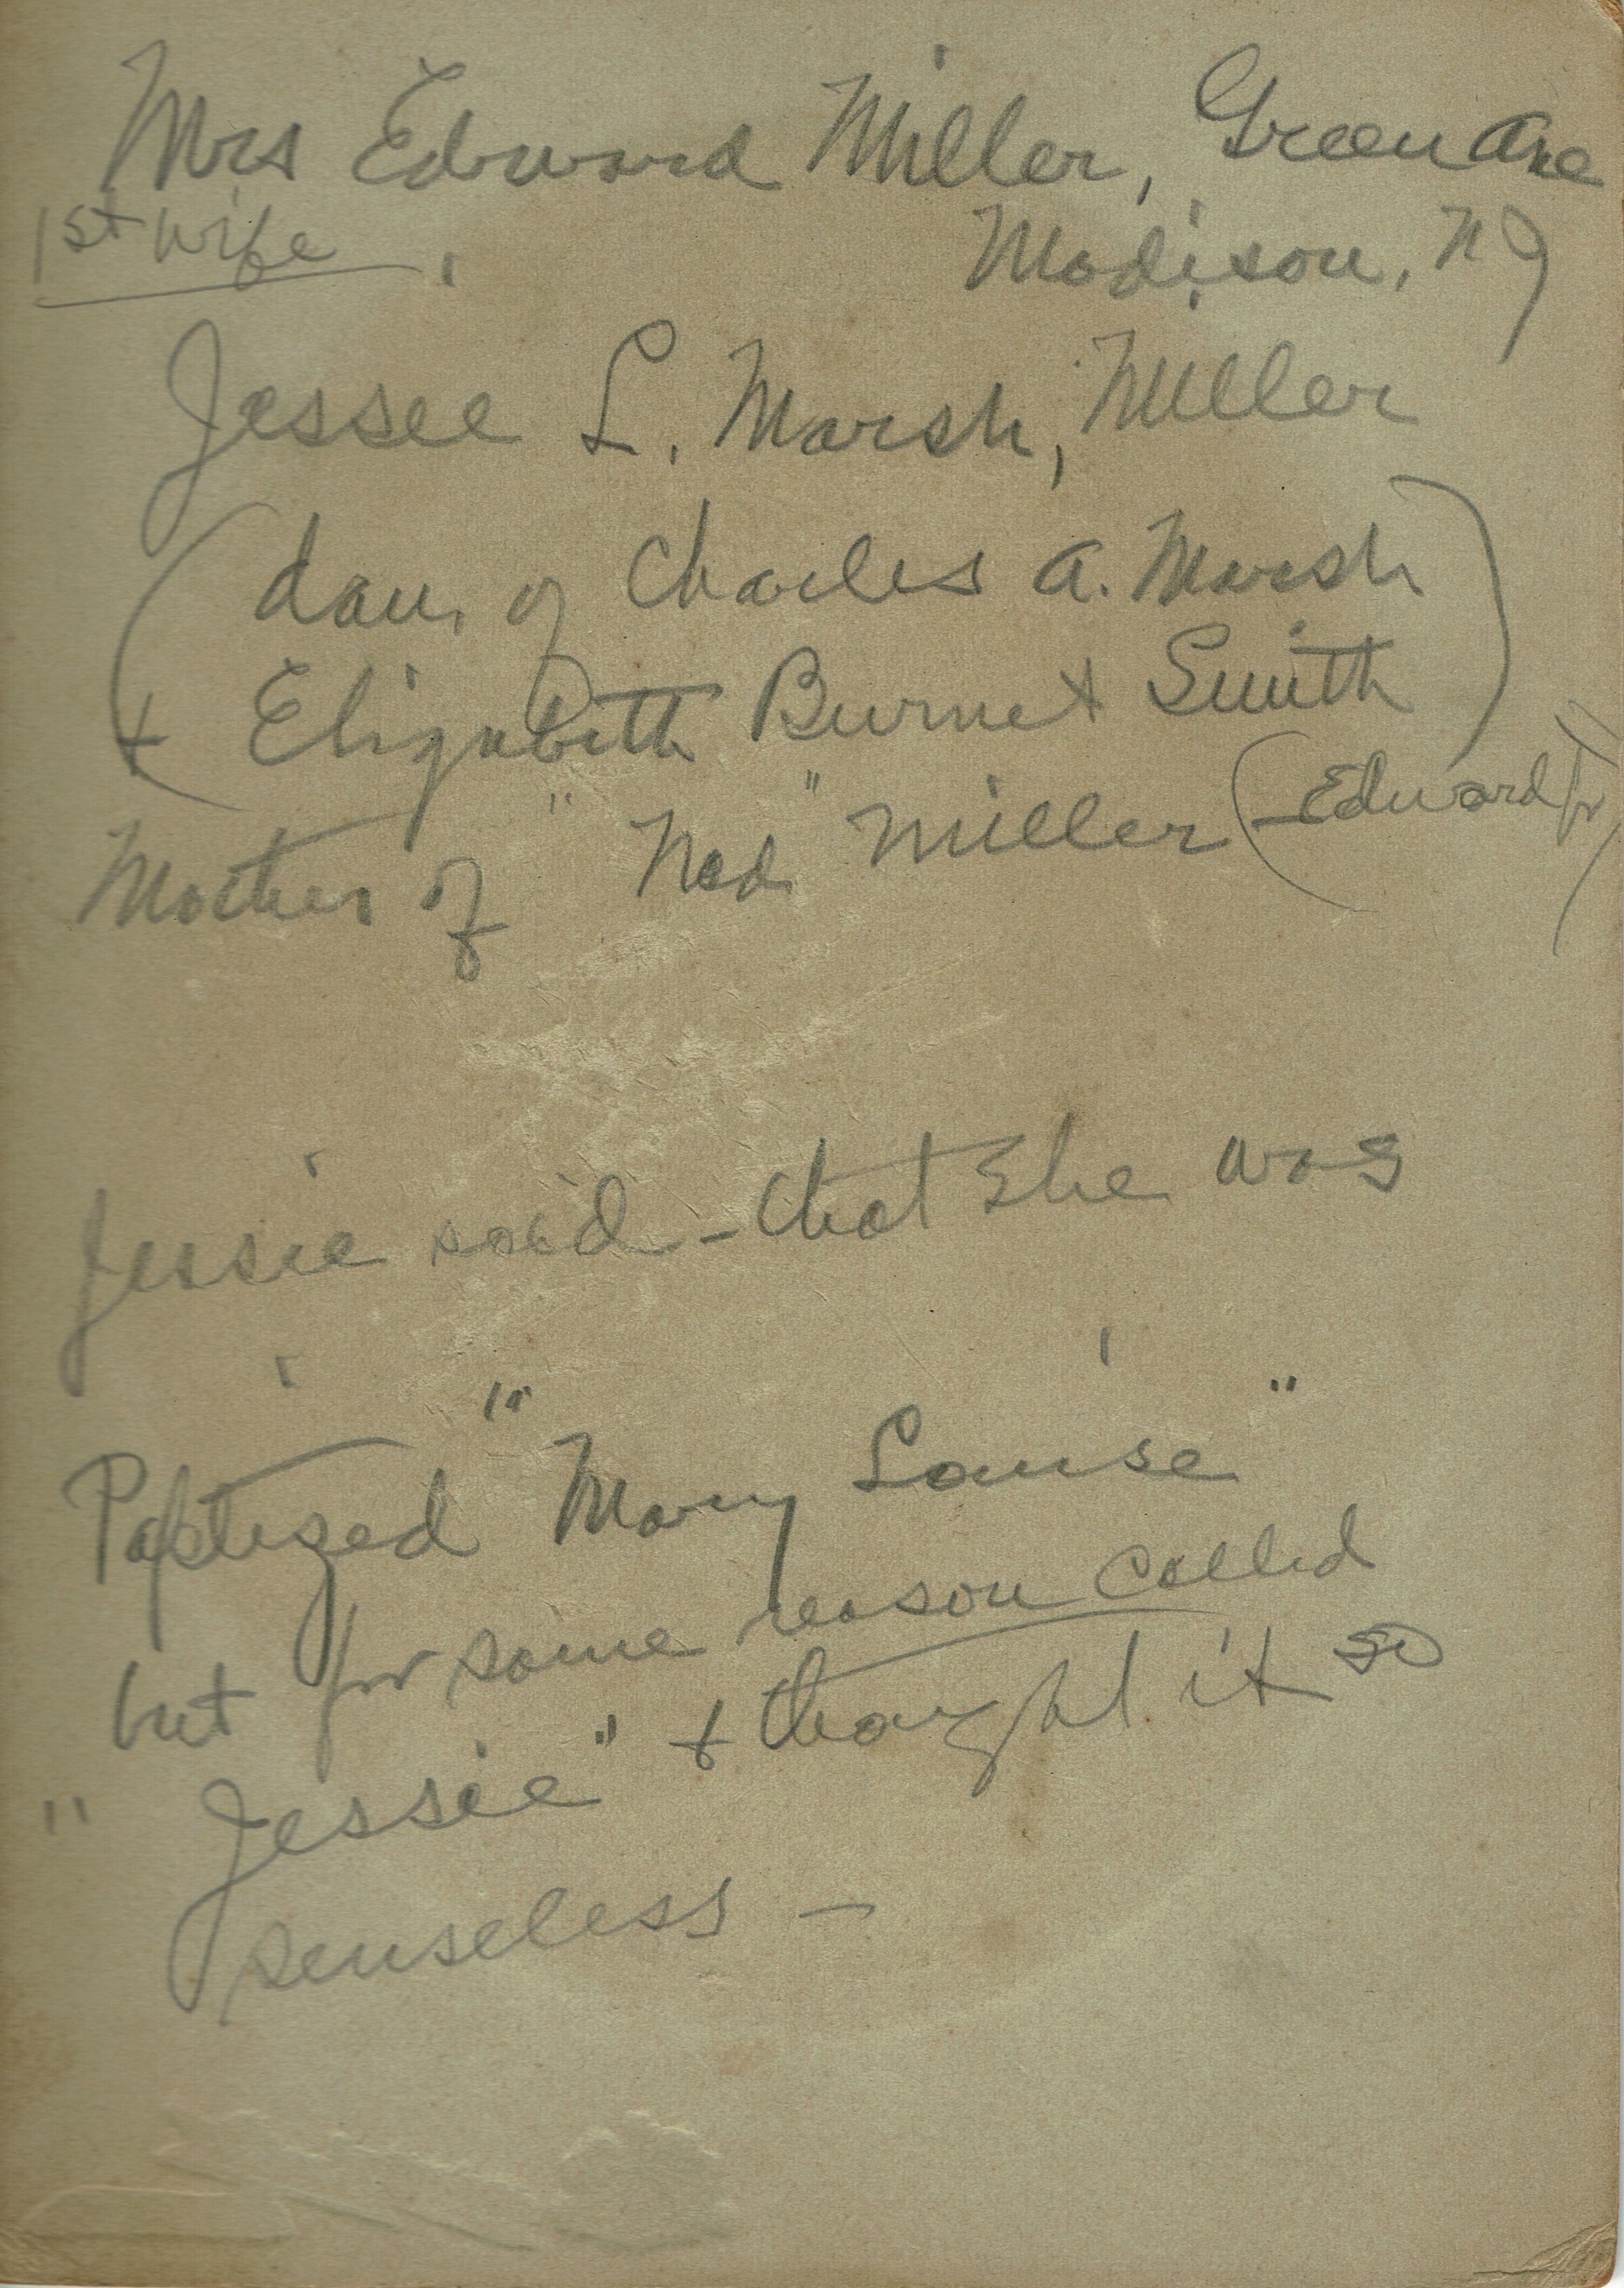 Mrs Edward Miller, Green Ave
1st wife. Madison, NJ
Jessee L. Marsh, Miller
(dau. of Charles A. Marsh
+ Elizabeth Burnet Smith)
Mother of "Ned" Miller (Edward Jr)
Jessie said - that she was
Paptized "Mary Louise"
but for some reason called
"Jessie" + thought it so
senseless -